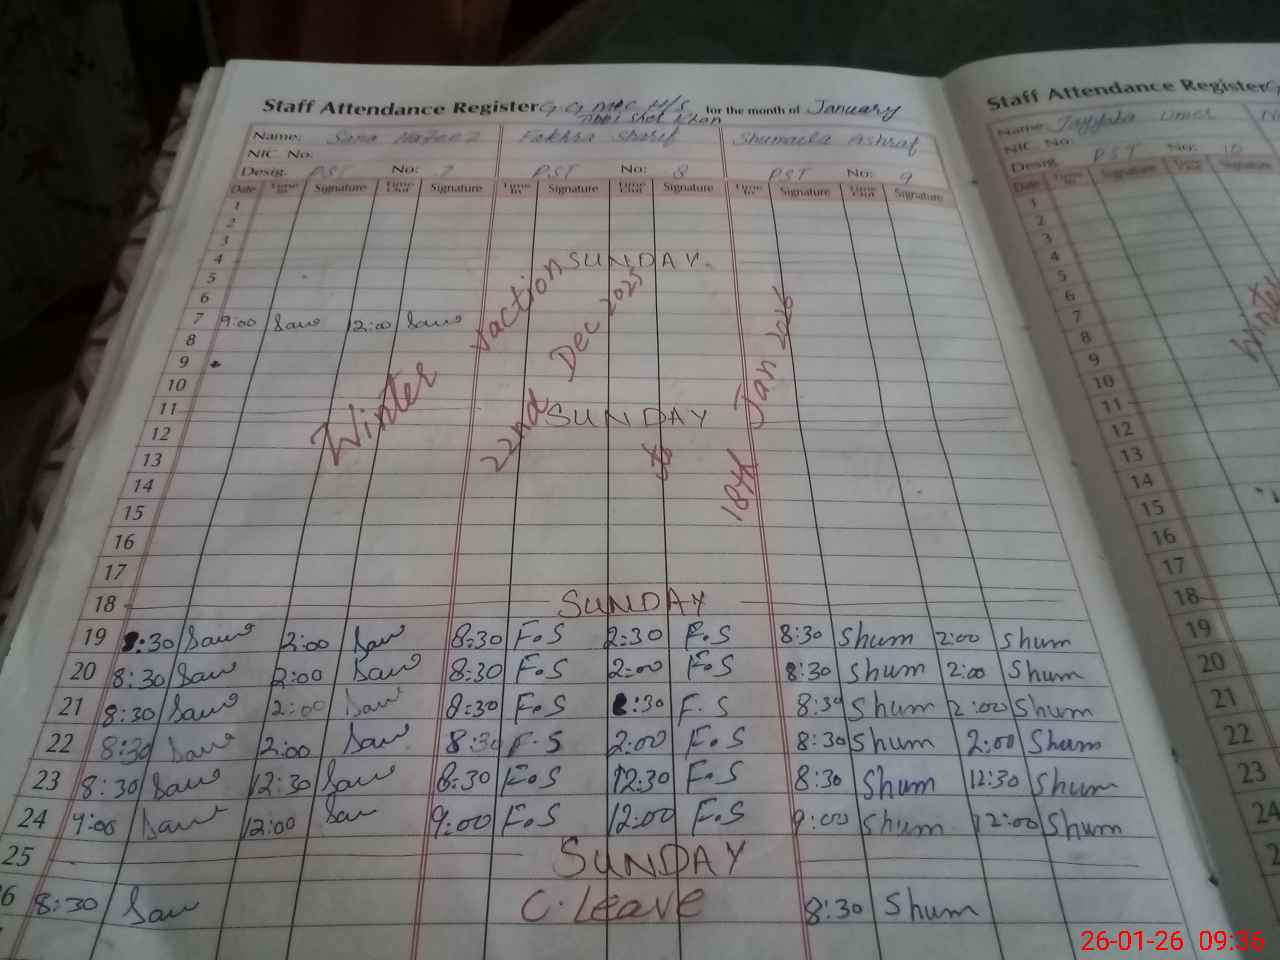 Staff Attendance Register G.G.MPC H/S for the month of January
Tibbi Shot Khan
Name: Sana Hafeez Fakhra Sharif Shumaila Ashraf
NIC No:
Desig. PST No: 7 PST No: 8 PST No: 9
Date Time In Signature Time Out Signature Time In Signature Time Out Signature Time In Signature Time Out Signature
1
2
3
4 SUNDAY.
5
6
7 9:00 Sana 12:00 Sana
8
9
10
11 SUNDAY
12
13
14
15
16
17
18 SUNDAY
Winter vaction
22nd Dec 2025
to
18th Jan 2026
19 8:30 Sana 2:00 Sana 8:30 F.S 2:30 F.S 8:30 Shum 2:00 Shum
20 8:30 Sana 2:00 Sana 8:30 F.S 2:00 F.S 8:30 Shum 2:00 Shum
21 8:30 Sana 2:00 Sana 8:30 F.S :30 F.S 8:30 Shum 2:00 Shum
22 8:30 Sana 2:00 Sana 8:30 F.S 2:00 F.S 8:30 Shum 2:00 Shum
23 8:30 Sana 12:30 Sana 8:30 F.S 12:30 F.S 8:30 Shum 12:30 Shum
24 9:00 Sana 12:00 Sana 9:00 F.S 12:00 F.S 9:00 Shum 12:00 Shum
25 SUNDAY
6 8:30 Sana C.Leave 8:30 Shum
Staff Attendance Register
Name: Tayyaba Umer
NIC No:
Desig. PST No: 10
Date Time In Signature Time Out Signature
1
2
3
4
5
6
7
8
9
10
11
12
13
14
15
16
17
18
19
20
21
22
23
24
2
Winter
26-01-26 09:36